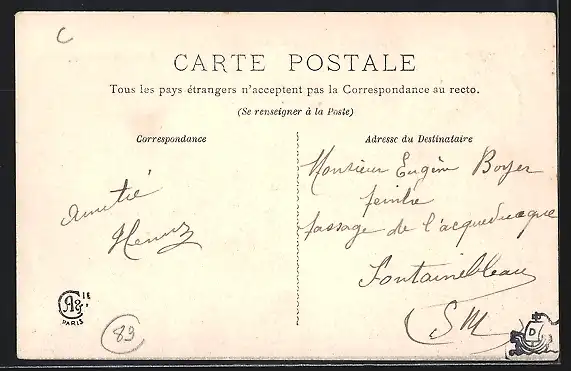 C
CARTE POSTALE
Tous les pays étrangers n'acceptent pas la Correspondance au recto.
(Se renseigner à la Poste)
Correspondance
Adresse du Destinataire
Monsieur Eugèn Boyer
peintre
passage de l'acqueducque
Fontainebleau
S M
Amitié
Henry
A
IE
PARIS
83
D